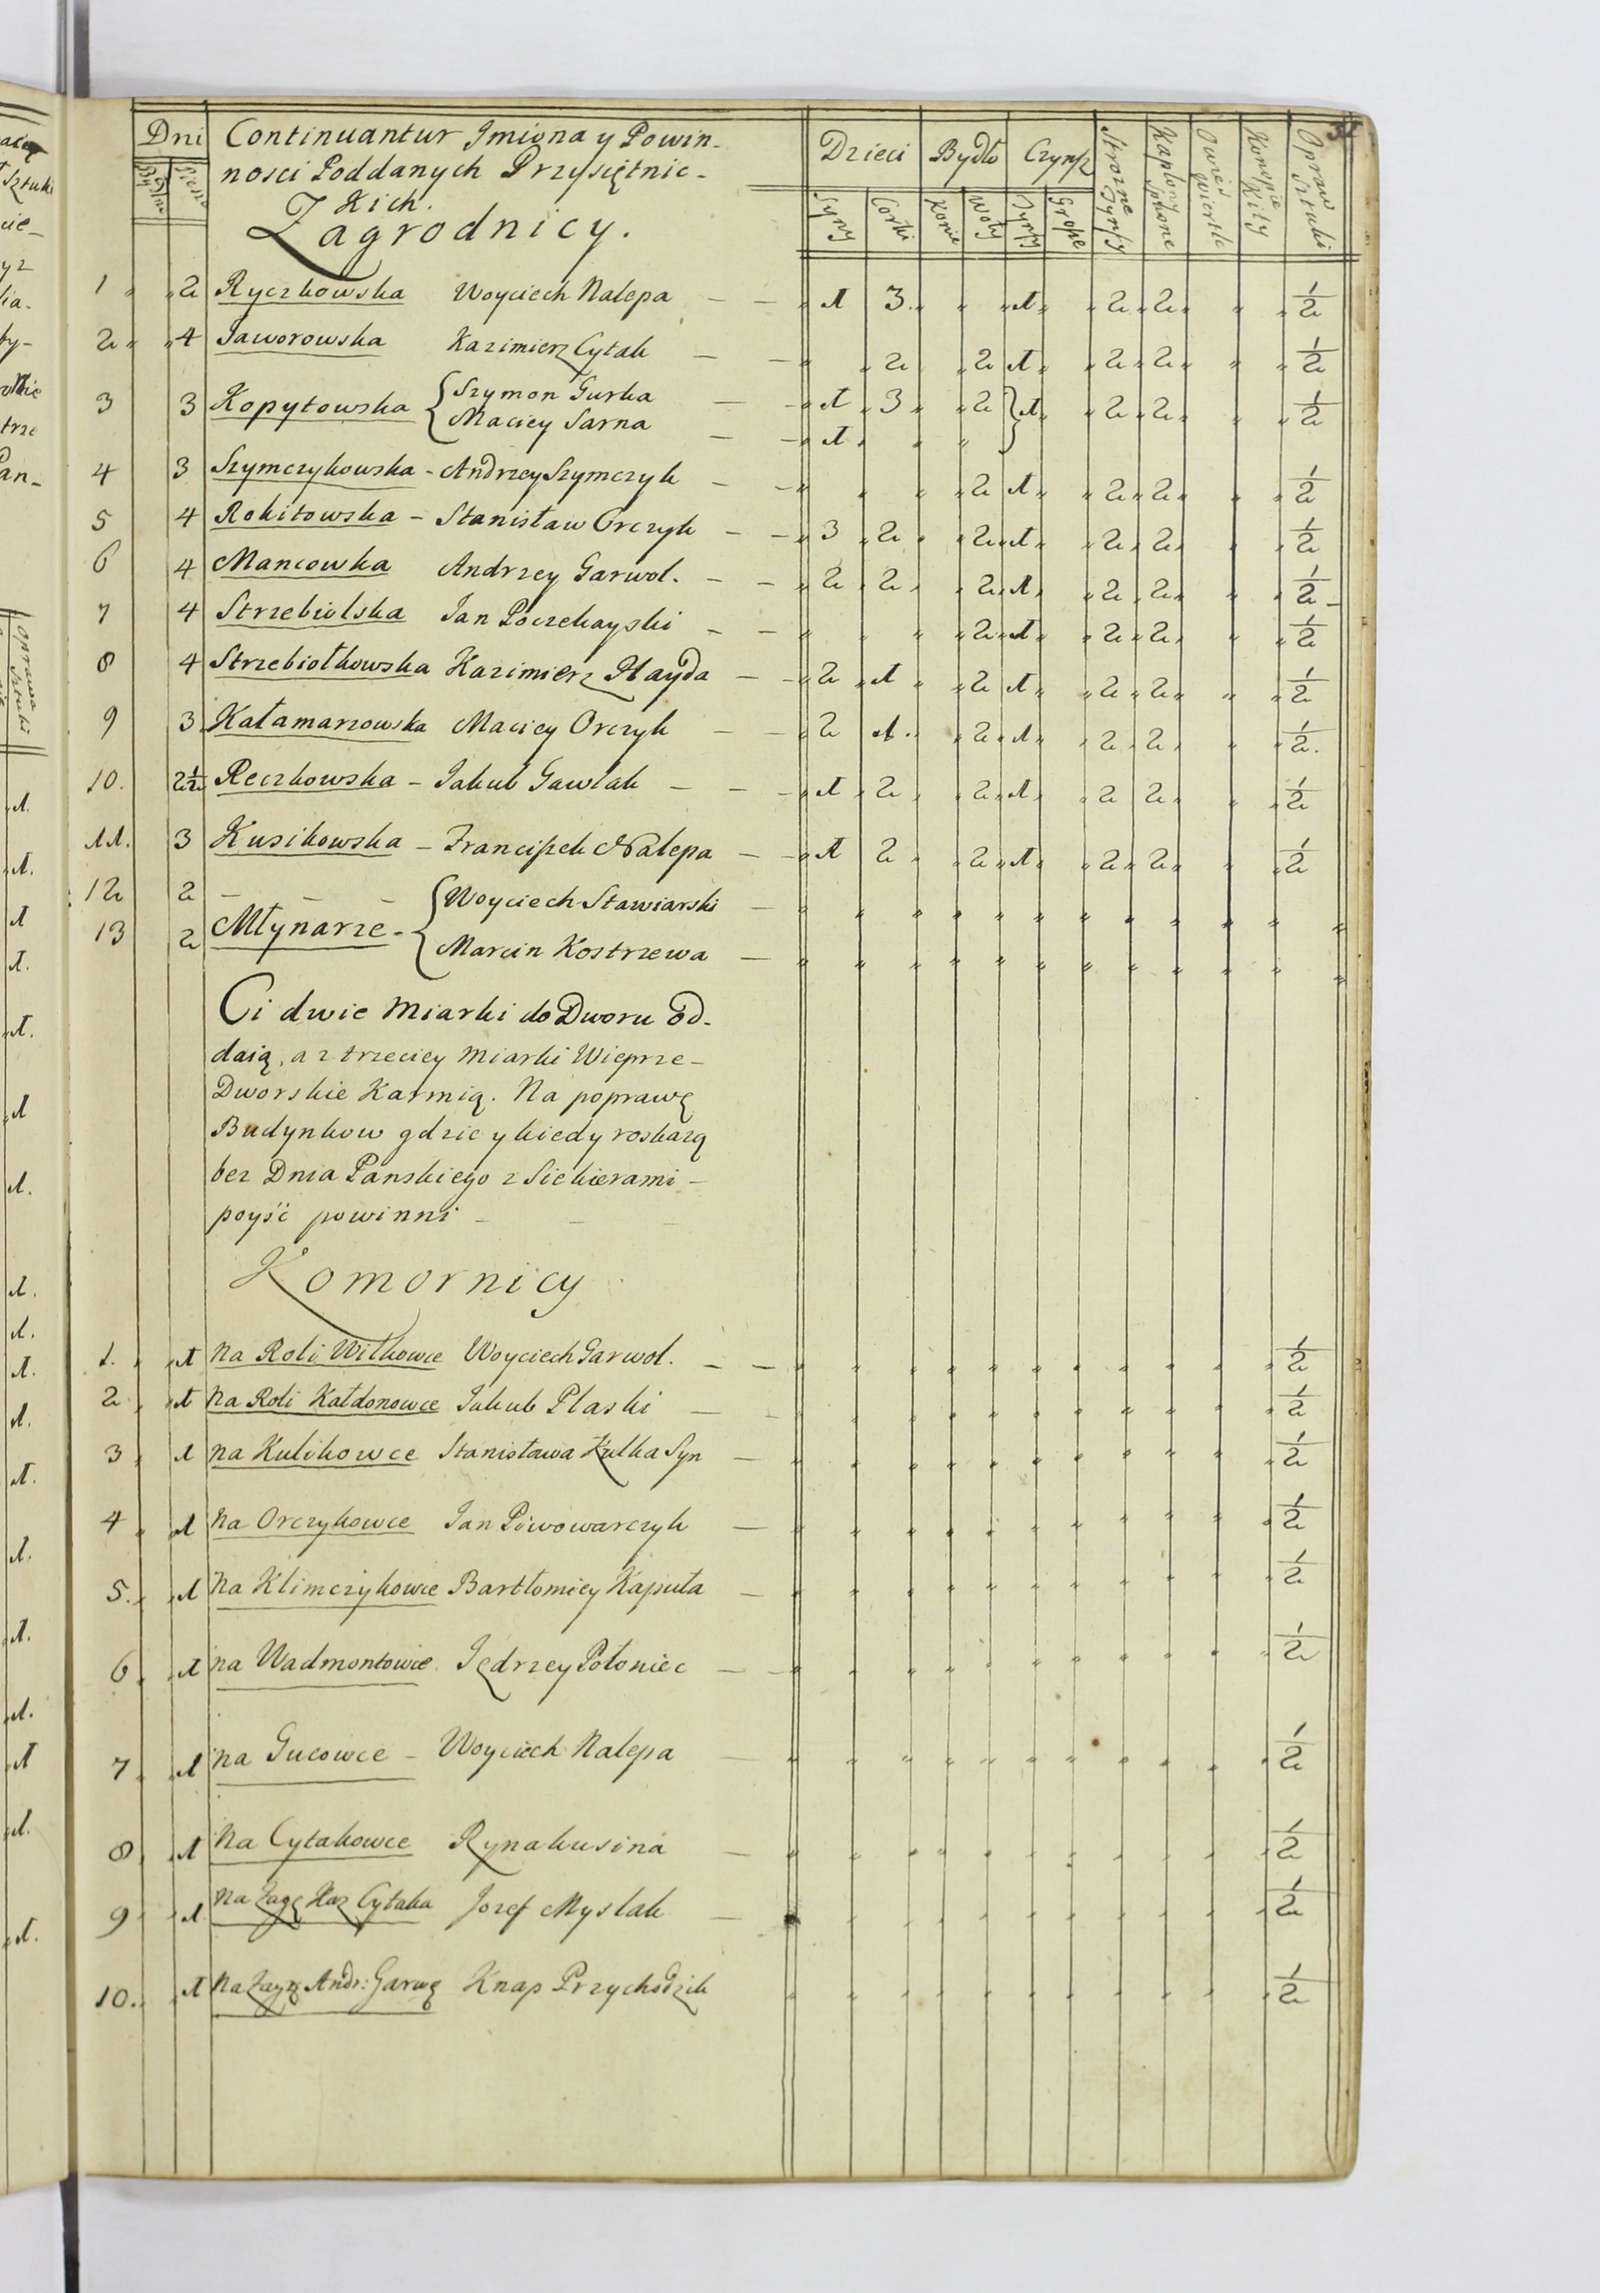 Dni Continuantur Imiona y Powin-
nosci Poddanych Przysiętnic-
kich.
Zagrodnicy.
Piesze
Dzieci Bydło Czynsz
Syny Corki Konie Woły Tynfy Grosze Strozne Tynfy Kapłony Spione Owies Wiertle Konopie Kity Opraw Sztuki
1 " " 2 Ryczkowska Woyciech Nalepa — — " 1 3 " " " 1 " " 2 " 2 " " " 1/2
2 " " 4 Jaworowska Kazimierz Cytak — — " 2 " 2 1 " " 2 " 2 " " " 1/2
3 3 Kopytowska { Szymon Gurka — — " 1 " 3 " " 2 } 1 " " 2 " 2 " " " 1/2
Maciey Sarna — — " 1 " " "
4 3 Szymczykowska - Andrzey Szymczyk — — " " " " 2 1 " " 2 " 2 " " " 1/2
5 4 Rokitowska - Stanisław Orczyk — — " 3 " 2 " " 2 " 1 " " 2 " 2 " " " 1/2
6 4 Mancowka Andrzey Garwol. — — " 2 " 2 " " 2 " 1 " " 2 " 2 " " " 1/2
7 4 Strzebiolska Jan Poczekayski — — " " " 2 " 1 " " 2 " 2 " " " 1/2
8 4 Strzebiołkowska Kazimierz Płayda — — " 2 " 1 " " 2 " 1 " " 2 " 2 " " " 1/2
9 3 Kałamarzowska Maciey Orczyk — — " 2 1 " " 2 " 1 " " 2 " 2 " " " 1/2
10. 2 1/2 Reczkowska - Jakub Gawlak — — " 1 " 2 " " 2 " 1 " " 2 2 " " " 1/2
11. 3 Kusikowska - Franciszek Nalepa — — " 1 2 " " 2 " 1 " " 2 " 2 " " " 1/2
12 2 — — — { Woyciech Stawiarski — " " " " " " " " " " " "
Młynarze -
13 2 Marcin Kostrzewa — " " " " " " " " " " " "
Ci dwie Miarki do Dworu od-
daią, a z trzeciey Miarki Wieprze-
Dworskie Karmią. Na poprawę
Budynkow gdzie y kiedy roskarzą
bez Dnia Panskiego z Siekierami -
poyść powinni —
Komornicy
1. " " 1 Na Roli Wilkowce Woyciech Garwol. — — " " " " " " " " " " " 1/2
2 " " 1 Na Roli Kałdonowce Jakub Plaski — — " " " " " " " " " " " 1/2
3 " 1 na Kulikowce Stanisława Kulka Syn — " " " " " " " " " " " 1/2
4 " " 1 Na Orczykowce Jan Piwowarczyk — " " " " " " " " " " " 1/2
5. " " 1 Na Klimczykowce Bartłomiey Kaputa — " " " " " " " " " " " 1/2
6 " " 1 na Wadmontowce Jędrzey Połoniec — — " " " " " " " " " " " 1/2
7 " " 1 na Gucowce - Woyciech Nalepa — " " " " " " " " " " " 1/2
8 " " 1 Na Cytakowce Rynakusina — " " " " " " " " " " " 1/2
9 " " 1 Na Zagr Kaz Cytaka Jozef Myslak — " " " " " " " " " " " 1/2
10. " 1 Na Zagr Andr: Garwę Knap Przychodzik " " " " " " " " " " " 1/2